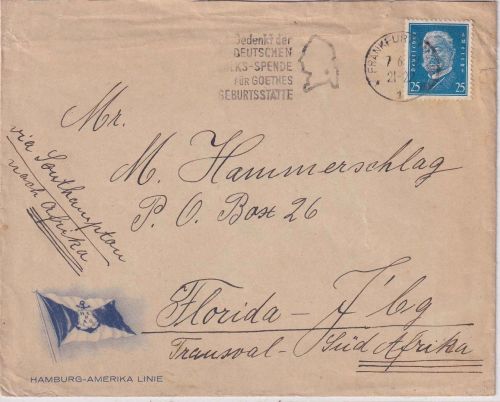 Gedenkt der
DEUTSCHEN
VOLKS-SPENDE
FÜR GOETHES
GEBURTSSTÄTTE
FRANKFUR
7 6
21-2
1
DEUTSCHES REICH
25 25
via Southampton
nach Afrika
Mr.
M. Hammerschlag
P. O. Box 26
Florida - J'bg
Transval - Süd Afrika
HAMBURG-AMERIKA LINIE